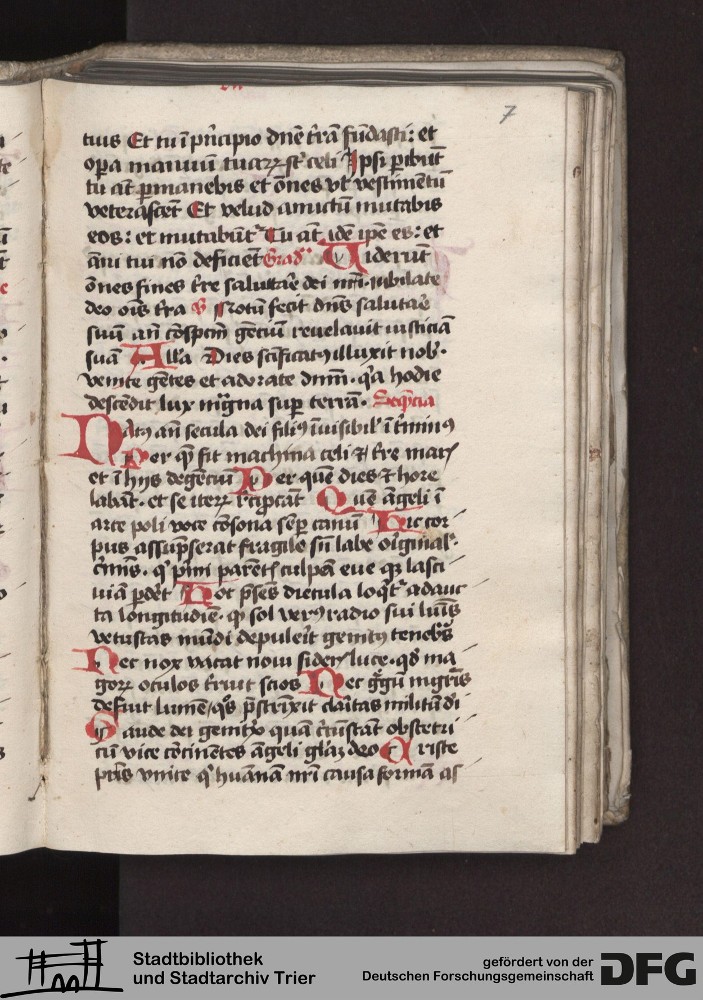 7
tuus Et tu ī p̄ncipio dn̄e t̄rā fūdasti: et
opa manuū tuaꝝ st̄ celi Ipsi ꝑibūt
tu aū ꝑmanebis et ōnes vt vestimētū
veterascēt Et velud amictum mutabis
eos: et mutabūt᷑ Tu aūt idē ipse es: et
āni tui nō deficiēt Grad᷑ Viderūt
ōnes fines t̄re salutare dei nr̄i· iubilate
deo oīs t̄ra Notum fecit dn̄s salutare
suū an̄ cōspectū gēciū reuelauit iusticiā
suā All'a Dies sc̄ificatꝰ illuxit nob·
venite gētes et adorate dn̄m· q̄a hodie
descēdit lux magna sup terrā· Seq̄cia
Natꝰ an̄ secula dei filiꝰ īuisibil' īt̄minꝰ
Per q̄ fit machina celi ⁊ t̄re marꝭ
et ī hijs degēciū Per quē dies ⁊ hore
labāt· et se iteꝝ rēcipcāt Quē āgeli ī
arce poli voce cōsona sēp canūt Hic cor
pus assūpserat fragile sn̄ labe originalꝭ
c̄minis· q' p̄mi parētꝭ culpā eue qꝫ lasci
uiā
Hoc p̄sēs diecula loq̄t᷑ adauc
ta longitudīe· q̄ sol verꝰ radio sui luīs
vetustas mūdi depulerit genitꝰ tenebras
Nec nox vacat noui siderꝭ luce· qd̄ ma
goꝝ oculos t̄ruit scios Nec gregū mgr̄is
defuit lumē· q̄s p̄strīxit claritas militū dī
Gaude dei genitx̄ quā cīrcūstāt obstetri
cū vice cōcinētes āgeli gl̄iaꝫ deo Criste
pr̄is vnite q' huānā nr̄i causa formā as
Stadtbibliothek
und Stadtarchiv Trier
gefördert von der
Deutschen Forschungsgemeinschaft
DFG